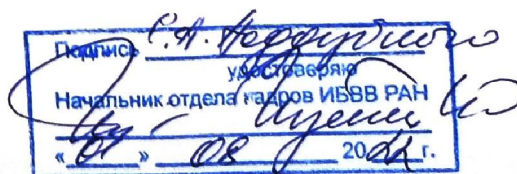 Подпись С.А. Поддубного
удостоверяю
Начальник отдела кадров ИБВВ РАН
« 01 » 08 2022 г.